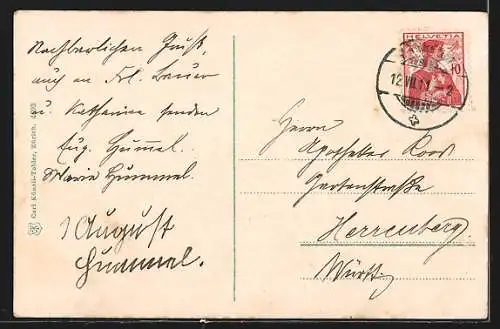 Nachbarlichen Gruß,
auch an Frl. Bauer
u. Katharine senden
Eug. Hummel.
Marie Hummel.
August
Hummel.
Carl Künzli-Tobler, Zürich.
HELVETIA
10
12.VII.11
Herrn
Apotheker
Gartenstraße
Herrenberg
Württ.